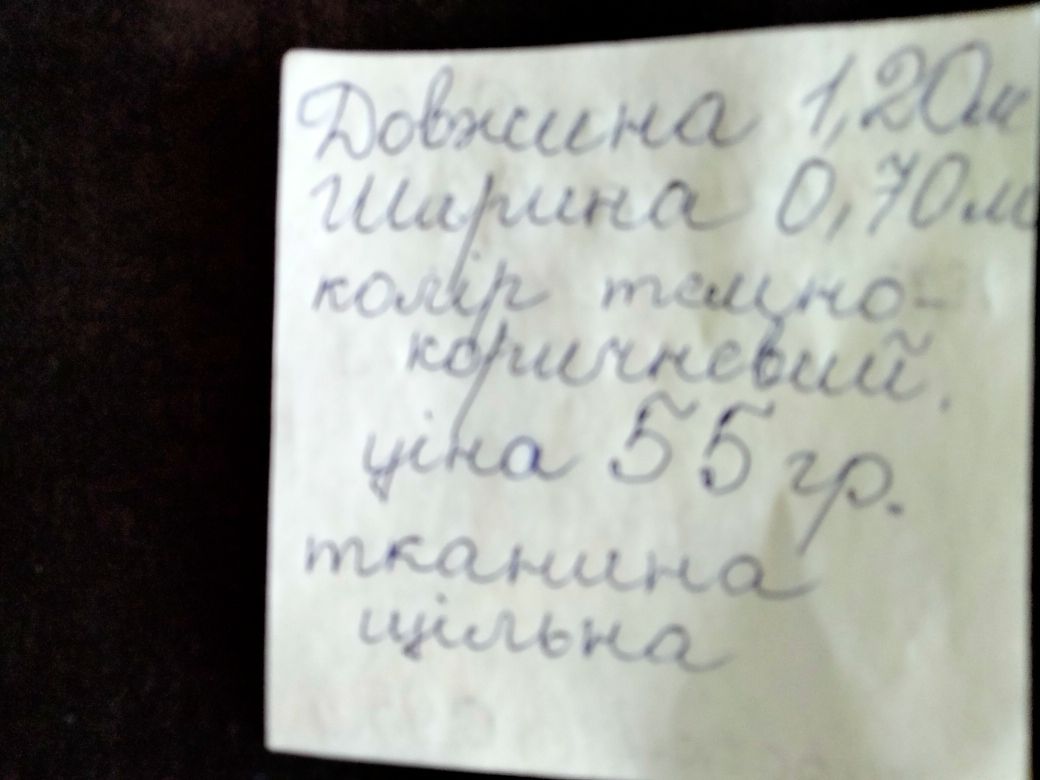 Довжина 1,20м
Ширина 0,70м
колір темно-
коричневий.
ціна 55 гр.
тканина
щільна